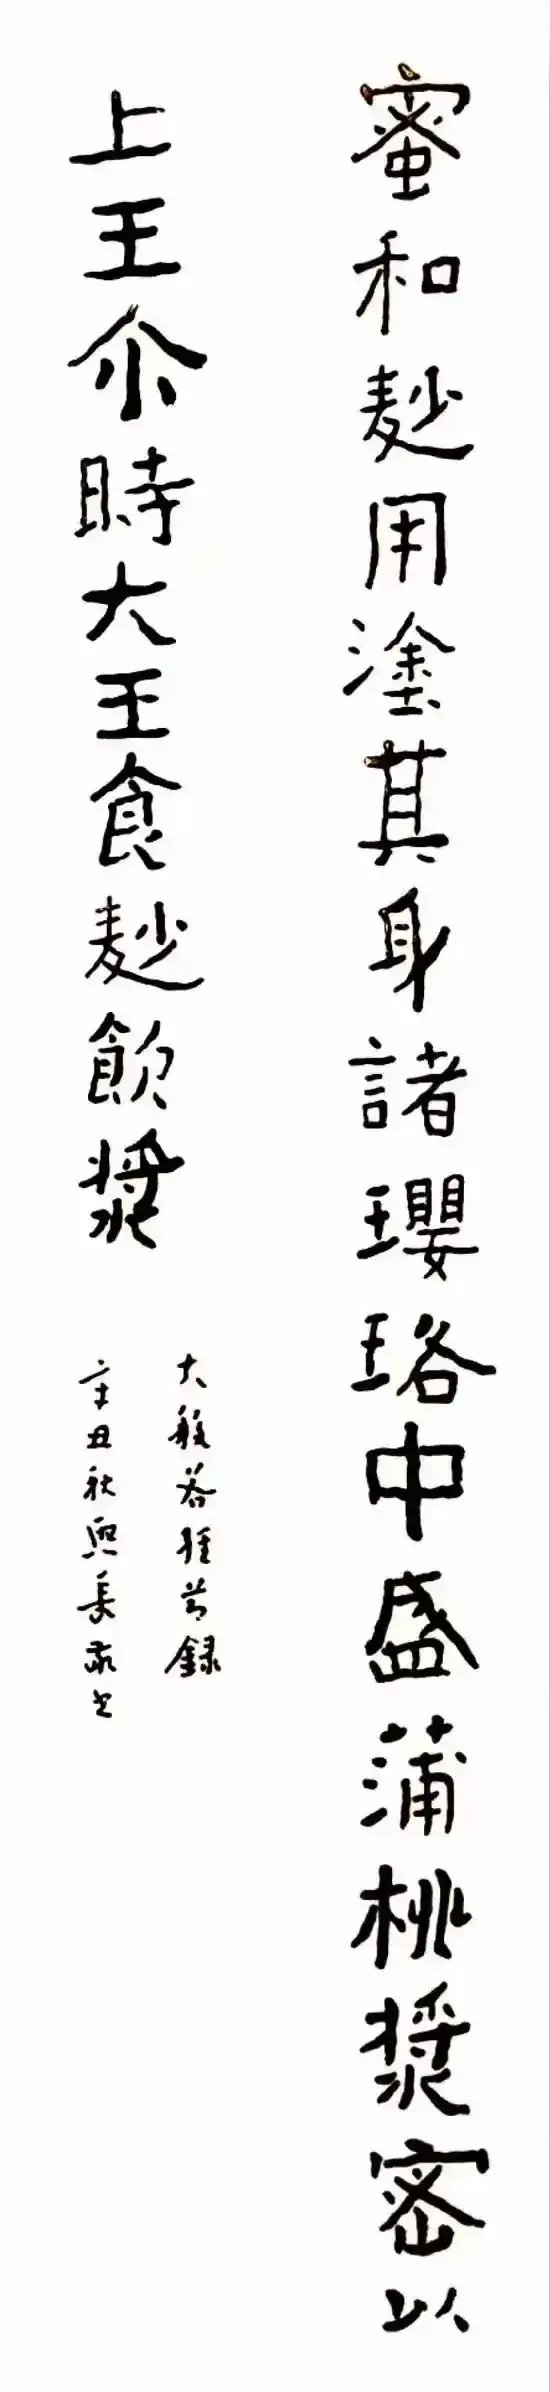 蜜和麨用塗其身諸瓔珞中盛蒲桃漿密以
上王尒時大王食麨飲漿
大般若經節錄
辛丑秋興長